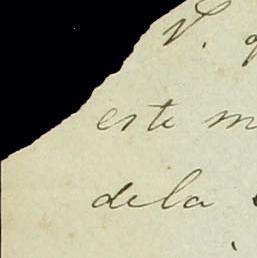 V. q
este m
dela